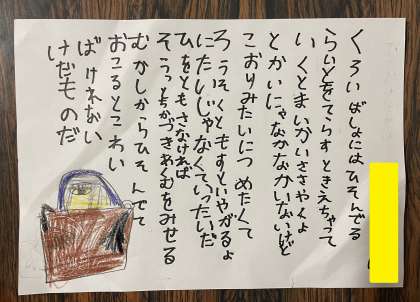 くろい ばしょには ひそんでる
らいとをてらす ときえちゃって
いくとまいかいささやくよ
とかいにゃなかなかいないけど
こおりみたいに つめたくて
ろうそくともすといやがるよ
にたいじゃなくていったいだ
ひをともさなければ
そうっとちかづききばをみせる
むかしからひそんでて
おこるとこわい
ばけれない
けだものだ